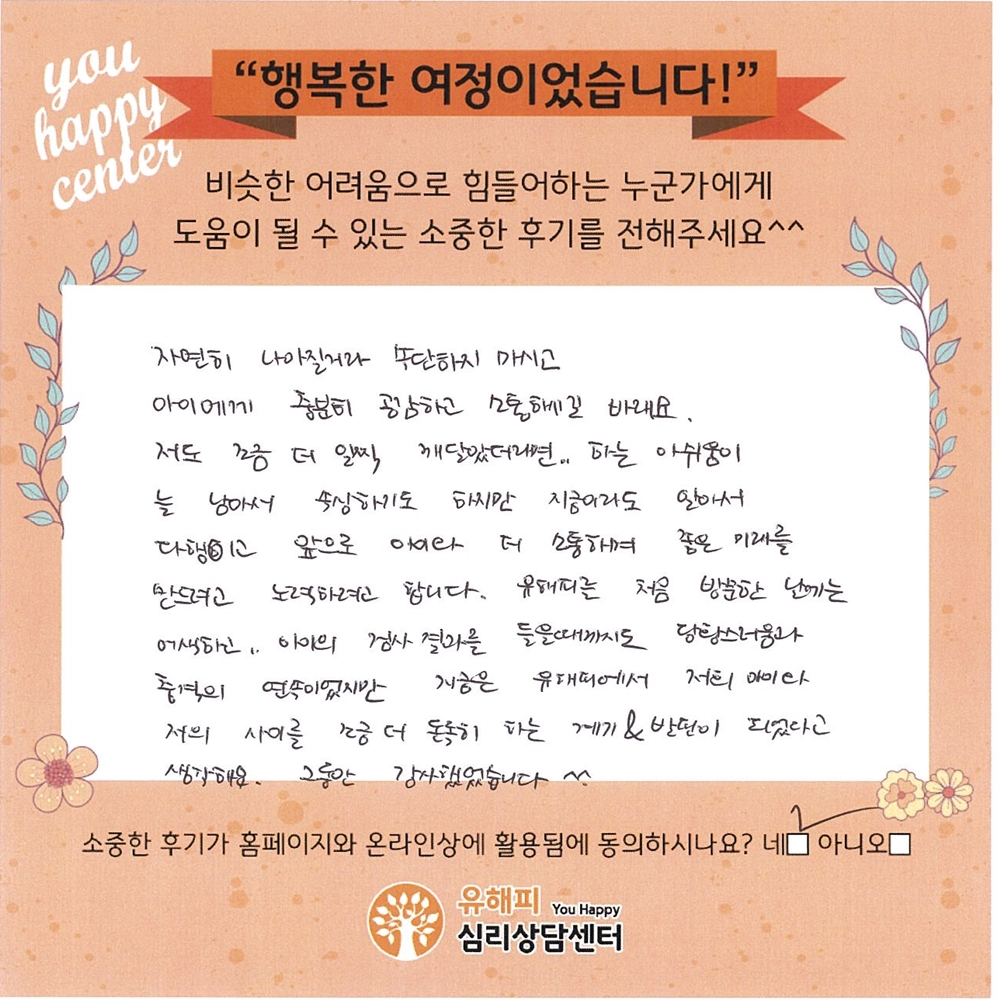 you
happy
center
“행복한 여정이었습니다!”
비슷한 어려움으로 힘들어하는 누군가에게
도움이 될 수 있는 소중한 후기를 전해주세요^^
자연히 나아질거라 속단하지 마시고
아이에게 충분히 공감하고 소통하길 바래요.
저도 조금 더 일찍 깨달았더라면.. 하는 아쉬움이
늘 남아서 속상하기도 하지만 지금이라도 알아서
다행이고 앞으로 아이와 더 소통하며 좋은 미래를
만드려고 노력하려고 합니다. 유해피는 처음 방문한 날에는
어색하고.. 아이의 검사 결과를 들을때까지도 당황스러움과
충격의 연속이었지만 지금은 유해피에서 저희 아이와
저의 사이를 조금 더 돈독히 하는 계기&발판이 되었다고
생각해요. 그동안 감사했었습니다 ^^
소중한 후기가 홈페이지와 온라인상에 활용됨에 동의하시나요? 네 아니오
유해피 You Happy
심리상담센터